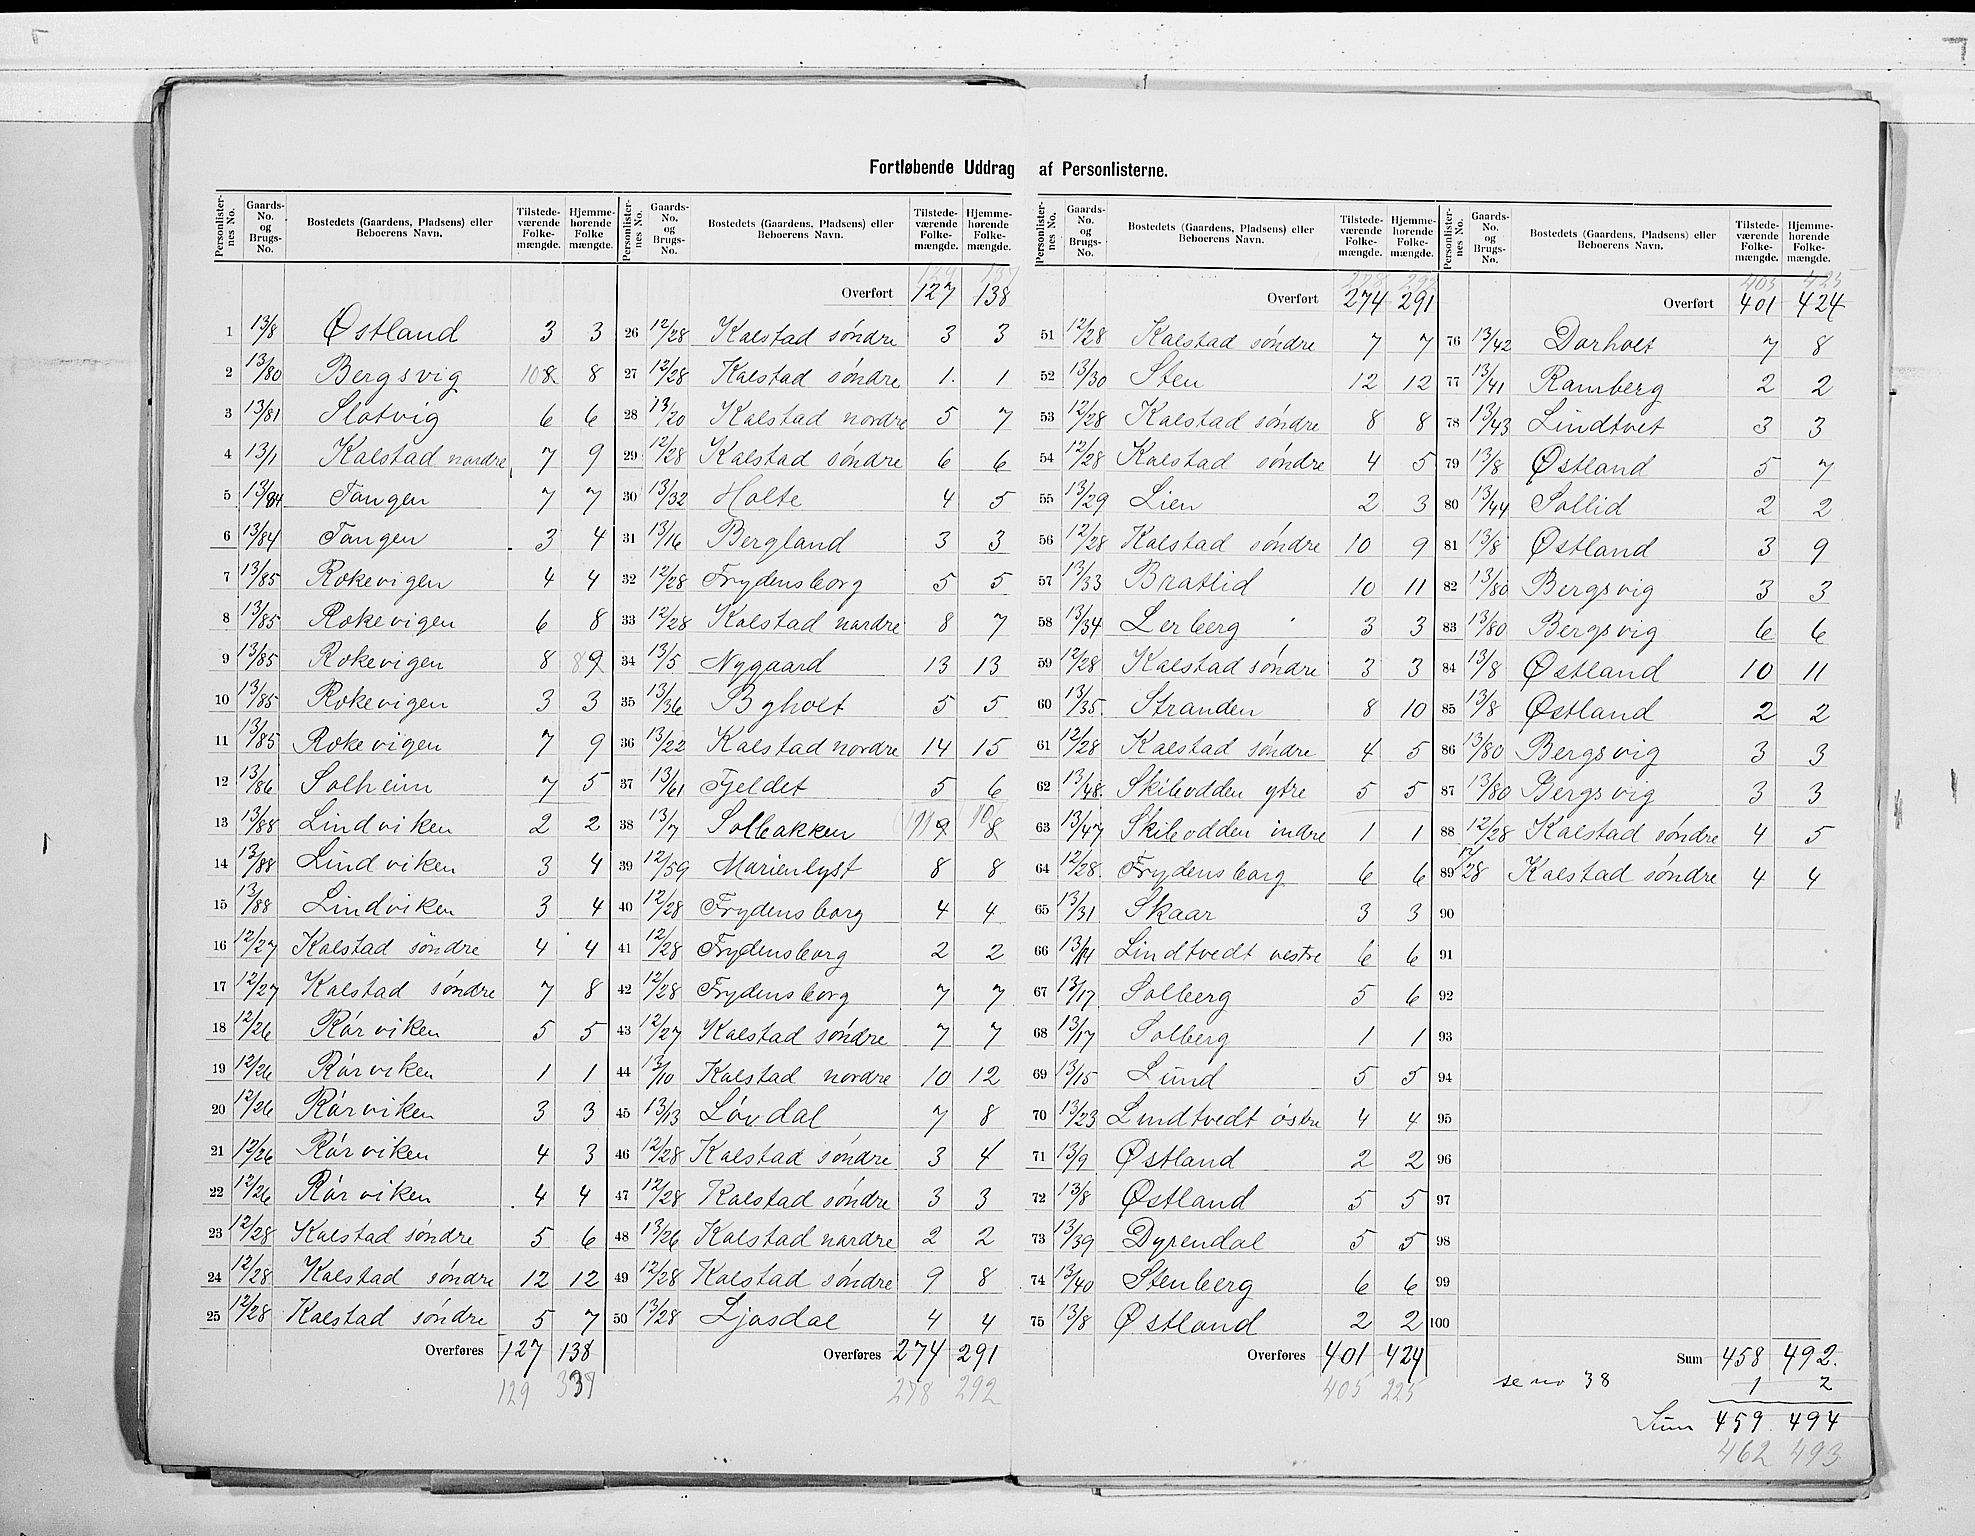 Fortløbende Uddrag af Personlisterne.
Personlister-nes No. Gaards-No. og Brugs-No. Bostedets (Gaardens, Pladsens) eller Beboerens Navn. Tilstede-værende Folke-mængde. Hjemme-hørende Folke mængde.
1 13/8 Østland 3 3
2 13/80 Bergsvig 10 8 8
3 13/81 Slotvig 6 6
4 13/1 Kalstad nordre 7 9
5 13/84 Tangen 7 7
6 13/84 Tangen 3 4
7 13/85 Rokevigen 4 4
8 13/85 Rokevigen 6 8
9 13/85 Rokevigen 8 8 9
10 13/85 Rokevigen 3 3
11 13/85 Rokevigen 7 9
12 13/86 Solheim 7 5
13 13/88 Lindviken 2 2
14 13/88 Lindviken 3 4
15 13/88 Lindviken 3 4
16 12/27 Kalstad søndre 4 4
17 12/27 Kalstad søndre 7 8
18 12/26 Rørviken 5 5
19 12/26 Rørviken 1 1
20 12/26 Rørviken 3 3
21 12/26 Rørviken 4 3
22 12/26 Rørviken 4 4
23 12/28 Kalstad søndre 5 6
24 12/28 Kalstad søndre 12 12
25 12/28 Kalstad søndre 5 7
Overføres 127 138
129
Personlister-nes No. Gaards-No. og Brugs-No. Bostedets (Gaardens, Pladsens) eller Beboerens Navn. Tilstede-værende Folke-mængde. Hjemme-hørende Folke-mængde.
129 137
Overført 127 138
26 12/28 Kalstad søndre 3 3
27 12/28 Kalstad søndre 1 1
28 13/20 Kalstad nordre 5 7
29 12/28 Kalstad søndre 6 6
30 13/32 Holte 4 5
31 13/16 Bergland 3 3
32 12/28 Frydensborg 5 5
33 12/28 Kalstad nordre 8 7
34 13/5 Nygaard 13 13
35 13/36 Byholt 5 5
36 13/22 Kalstad nordre 14 15
37 13/61 Fjeldet 5 6
38 13/7 Solbakken 11 9 10 8
39 12/59 Marienlyst 8 8
40 12/28 Frydensborg 4 4
41 12/28 Frydensborg 2 2
42 12/28 Frydensborg 7 7
43 12/27 Kalstad søndre 7 7
44 13/10 Kalstad nordre 10 12
45 13/13 Løvdal 7 8
46 12/28 Kalstad søndre 3 4
47 12/28 Kalstad søndre 3 3
48 13/26 Kalstad nordre 2 2
49 12/28 Kalstad søndre 9 8
50 13/28 Ljosdal 4 4
Overføres 274 291
278 292
Personlister-nes No. Gaards-No. og Brugs-No. Bostedets (Gaardens, Pladsens) eller Beboerens Navn. Tilstede-værende Folke-mængde. Hjemme-hørende Folke-mængde.
278 292
Overført 274 291
51 12/28 Kalstad søndre 7 7
52 13/30 Sten 12 12
53 12/28 Kalstad søndre 8 8
54 12/28 Kalstad søndre 4 5
55 13/29 Lien 2 3
56 12/28 Kalstad søndre 10 9
57 13/33 Bratlid 10 11
58 13/34 Lerberg 3 3
59 12/28 Kalstad søndre 3 3
60 13/35 Stranden 8 10
61 12/28 Kalstad søndre 4 5
62 13/48 Skilvodden ytre 5 5
63 13/47 Skilvodden indre 1 1
64 12/28 Frydensborg 6 6
65 13/31 Skaar 3 3
66 13/14 Lindtvedt vestre 6 6
67 13/17 Solberg 5 6
68 13/17 Solberg 1 1
69 13/15 Lund 5 5
70 13/23 Lindtvedt østre 4 4
71 13/9 Østland 2 2
72 13/8 Østland 5 5
73 13/39 Dyrendal 5 5
74 13/40 Stenberg 6 6
75 13/8 Østland 2 2
Overføres 401 424
405 225
Personlister-nes No. Gaards-No. og Brugs-No. Bostedets (Gaardens, Pladsens) eller Beboerens Navn. Tilstede-værende Folke-mængde. Hjemme-hørende Folke-mængde.
405 425
Overført 401 424
76 13/42 Dorholt 7 8
77 13/41 Ramberg 2 2
78 13/43 Lindtvet 3 3
79 13/8 Østland 5 7
80 13/44 Sollid 2 2
81 13/8 Østland 3 9
82 13/80 Bergsvig 3 3
83 13/80 Bergsvig 6 6
84 13/8 Østland 10 11
85 13/8 Østland 2 2
86 13/80 Bergsvig 3 3
87 13/80 Bergsvig 3 3
88 12/28 Kalstad søndre 4 5
89 12/28 Kalstad søndre 4 4
90
91
92
93
94
95
96
97
98
99
100
Sum 458 492.
se no 38 1 2
Sum 459 494
462 493